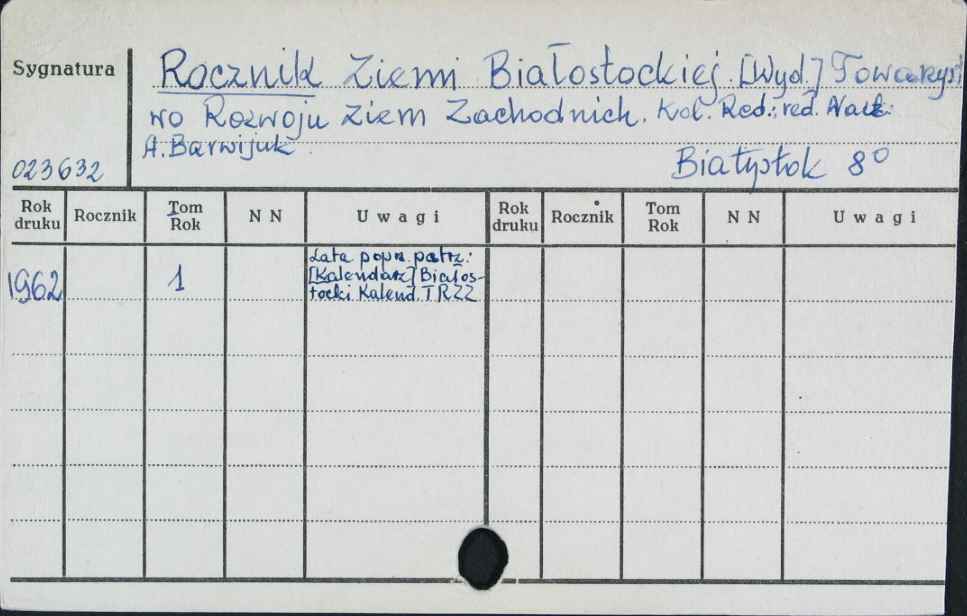 Sygnatura
Rocznik Ziemi Białostockiej. [Wyd.] Towarzyst
wo Rozwoju Ziem Zachodnich. Kol. Red.: red. Nacz.
A. Barwijuk.
023632
Białystok 8°
Rok druku Rocznik Tom Rok N N Uwagi Rok druku Rocznik Tom Rok N N Uwagi
1962 1 Lata popn. patrz:
[Kalendarz] Białos-
tocki Kalend. TRZZ